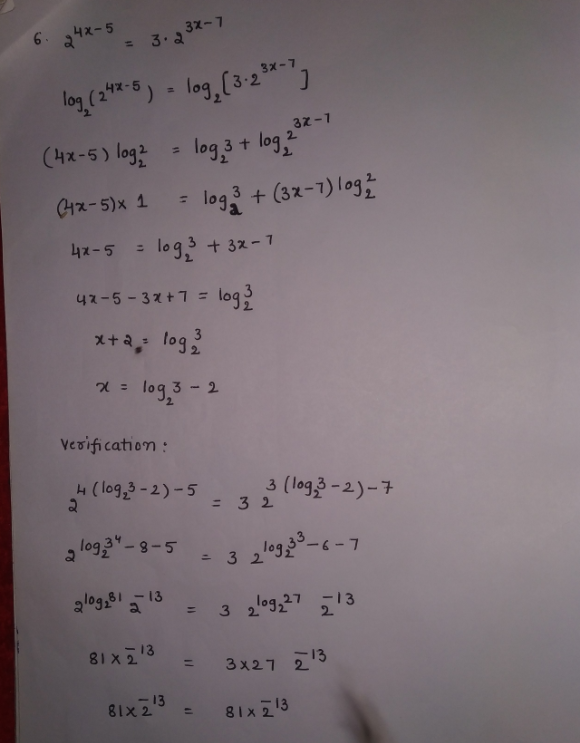 6. 2^{4x-5} = 3 · 2^{3x-7}
log_2 (2^{4x-5}) = log_2 [3·2^{3x-7}]
(4x-5) log_2^2 = log_2^3 + log_2 2^{3x-7}
(4x-5) x 1 = log_2^3 + (3x-7) log_2^2
4x-5 = log_2^3 + 3x-7
4x-5-3x+7 = log_2^3
x+2 = log_2^3
x = log_2 3 - 2
Verification :
2^{4(log_2 3 - 2) - 5} = 3 2^{3(log_2 3 - 2) - 7}
2^{log_2 3^4 - 8 - 5} = 3 2^{log_2 3^3 - 6 - 7}
2^{log_2 81} 2^{-13} = 3 2^{log_2 27} 2^{-13}
81 x 2^{-13} = 3 x 27 2^{-13}
81 x 2^{-13} = 81 x 2^{-13}